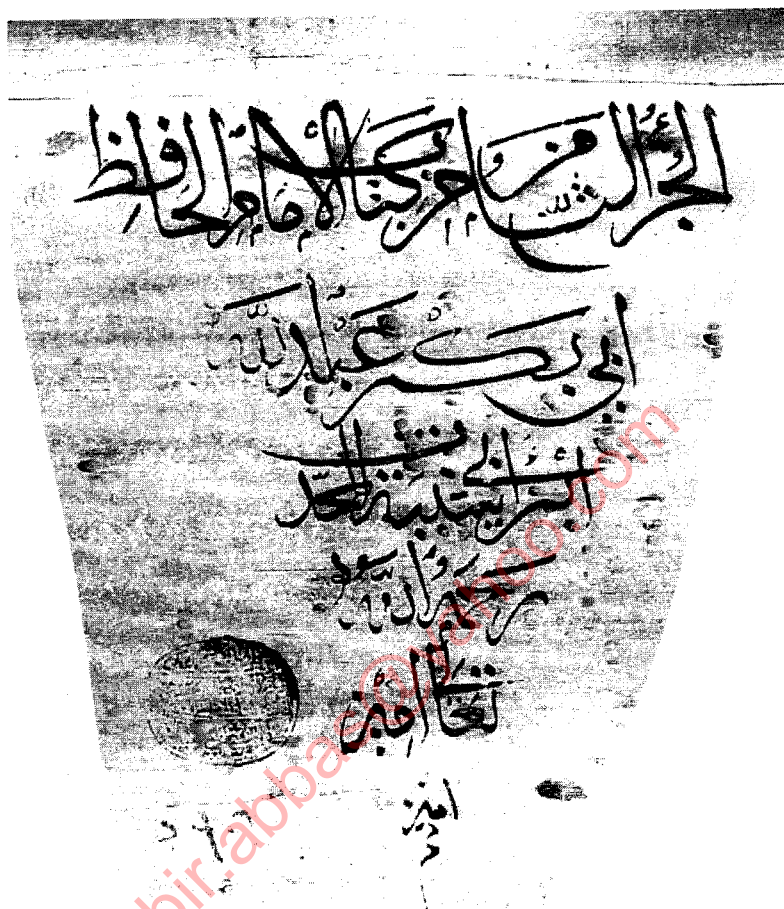 الجزء الثامن من كتاب الامام الحافظ
ابي بكر عبد الله
ابن ابي شيبة المحدث
رحمه الله
تعالى امين
امين
bir.abbas@yahoo.com